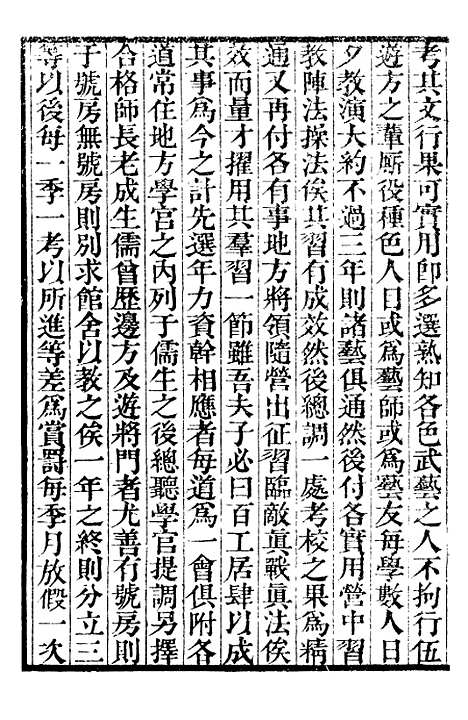 考其文行果可實用卽多選熟知各色武藝之人不拘行伍
遊方之輩厮役種色人日或爲藝師或爲藝友每學數人日
夕教演大約不過三年則諸藝俱通然後付各實用營中習
教陣法操法俟其習有成效然後總調一處考校之果爲精
通又再付各有事地方將領隨營出征習臨敵真戰真法俟
效而量才擢用其羣習一節雖吾夫子必曰百工居肆以成
其事爲今之計先選年力資幹相應者每道爲一會俱附各
道常住地方學官之內列于儒生之後總聽學官提調另擇
合格師長老成生儒曾歷邊方及遊將門者尤善有號房則
于號房無號房則別求館舍以教之俟一年之終則分立三
等以後每一季一考以所進等差爲賞罰每季月放假一次